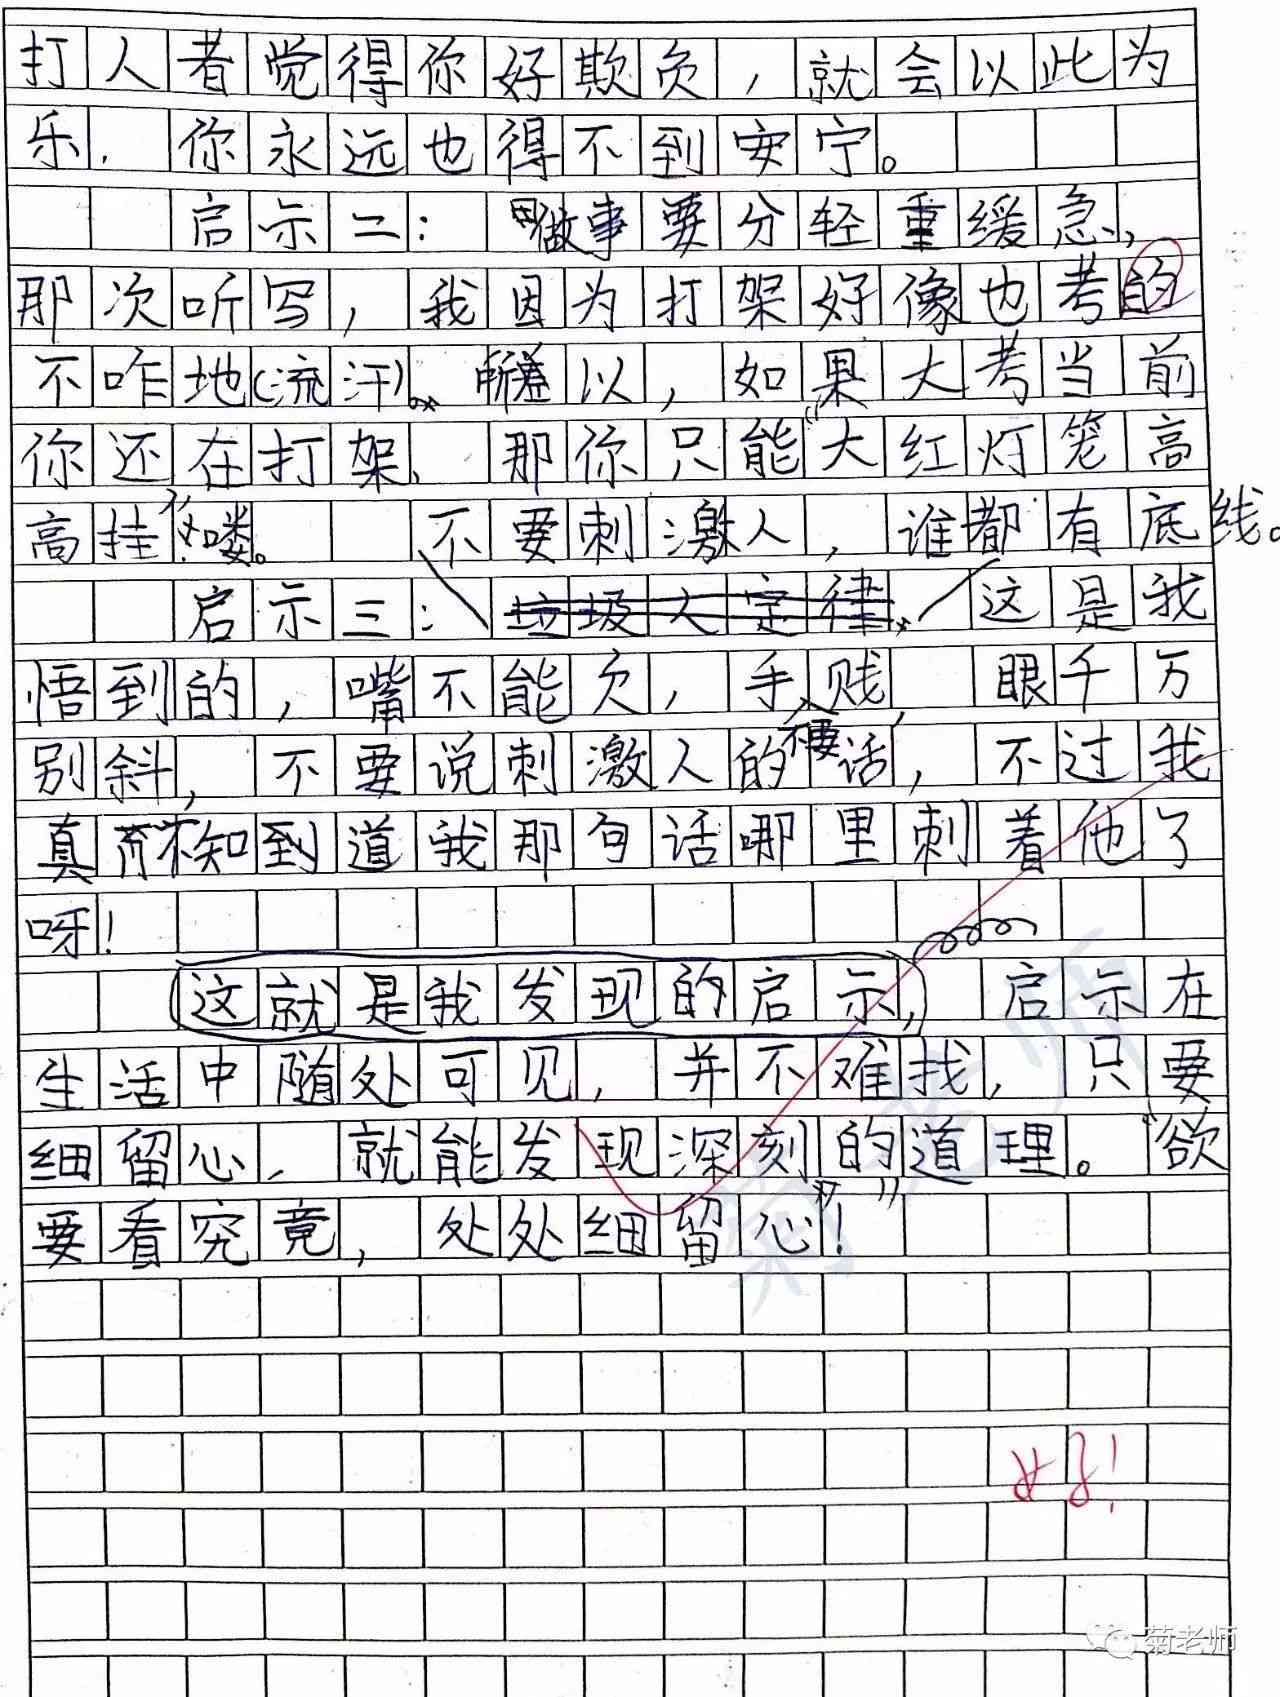 打人者觉得你好欺负，就会以此为
乐，你永远也得不到安宁。
启示二：做事要分轻重缓急，
那次听写，我因为打架好像也考的
不咋地（流汗）。所以，如果大考当前
你还在打架，那你只能“大红灯笼高
高挂”喽。不要刺激人，谁都有底线。
启示三：垃圾人定律，这是我
悟到的，嘴不能欠，手不要贱，眼千万
别斜，不要说刺激人的话，不过我
真不知到道我那句话哪里刺着他了
呀！
这就是我发现的启示，启示在
生活中随处可见，并不难找，只要
细留心，就能发现深刻的道理。“欲
要看究竟，处处细留心”！
好！
菊老师
菊老师